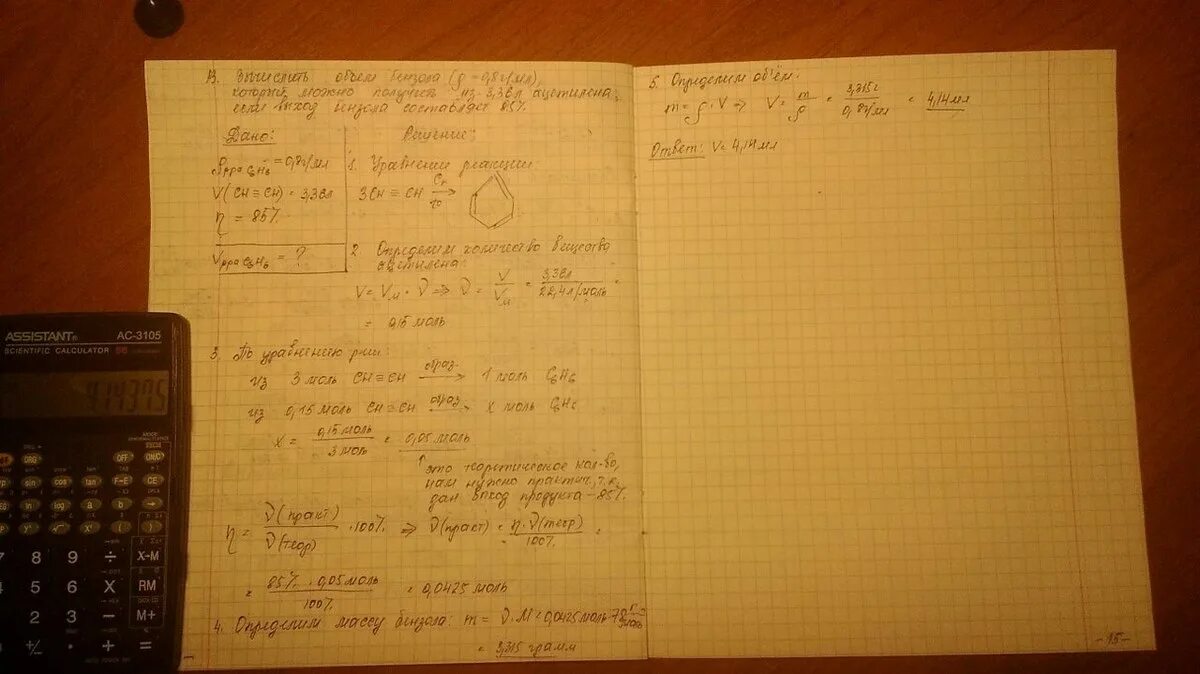 В. Вычислить объем бензола (ρ = 0,8 г/мл),
который можно получить из 3,36 л ацетилена,
если выход бензола составляет 85%
Дано:
Решение:
ρ р-ра C₆H₆ = 0,8 г/мл
V(CH≡CH) = 3,36 л
η = 85%
V р-ра C₆H₆ = ?
1. Уравнение реакции:
3CH≡CH
2. Определим количество вещества
ацетилена:
V = Vм · ν ⇒ ν = V/Vм = 3,36 л / 22,4 л/моль =
= 0,15 моль
3. По уравнению р-ии:
из 3 моль CH≡CH образ. → 1 моль C₆H₆
из 0,15 моль CH≡CH образ. → x моль C₆H₆
x = 0,15 моль / 3 моль = 0,05 моль
↑ это теоретическое кол-во,
нам нужно практич., т.к.
дан выход продукта - 85%
η = ν(практ) / ν(теор) · 100% ⇒ ν(практ) = η · ν(теор) / 100% =
= 85% · 0,05 моль / 100% = 0,0425 моль
4. Определим массу бензола: m = ν · M = 0,0425 моль · 78 г/моль
= 3,315 грамм
5. Определим об'ём:
m = ρ · V ⇒ V = m/ρ = 3,315 г / 0,8 г/мл = 4,14 мл
Ответ: V = 4,14 мл
-15-
ASSISTANT AC-3105
SCIENTIFIC CALCULATOR 56
4.14375
DRG OFF ON/C
sin cos tan F↔E CE
ln log a b →
( )
7 8 9 ÷ X→M
4 5 6 X RM
2 3 − M+
+/− · + =